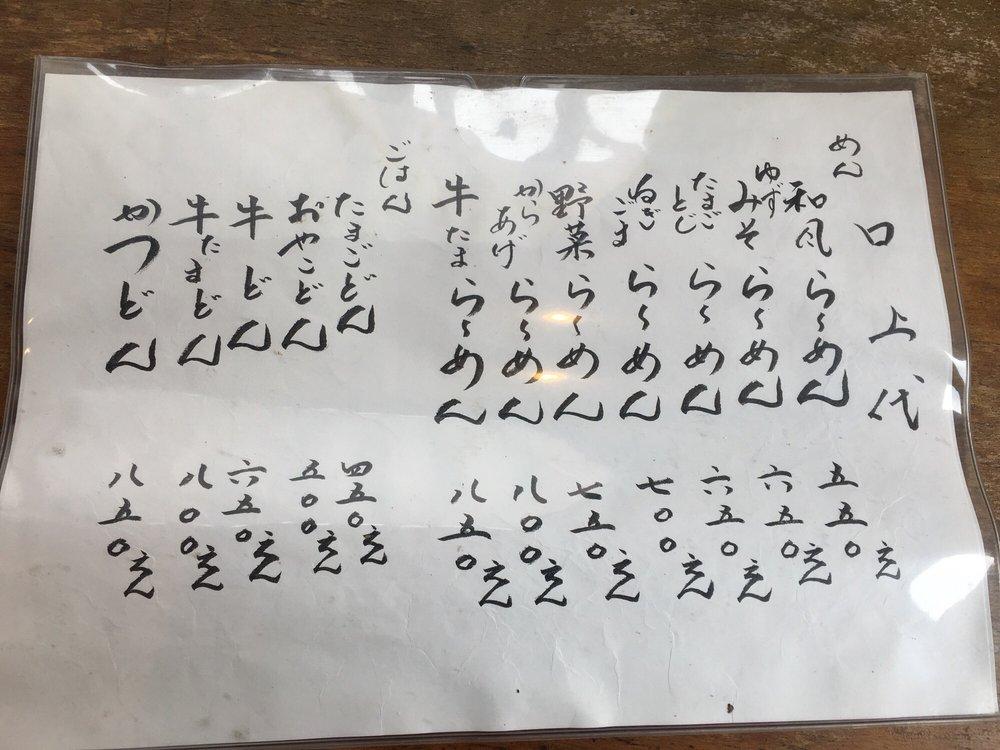 口上代
めん
和風らーめん 五五〇えん
ゆずみそらーめん 六五〇えん
たまごとじらーめん 六五〇えん
ねぎごまらーめん 七〇〇えん
野菜らーめん 七五〇えん
からあげらーめん 八〇〇えん
牛たまらーめん 八五〇えん
ごはん
たまごどん 四五〇えん
おやこどん 五〇〇えん
牛どん 六五〇えん
牛たまどん 八〇〇えん
かつどん 八五〇えん